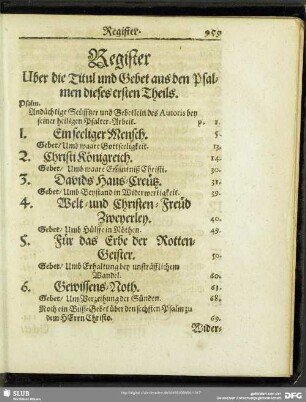 Register. 959
Register
Uber die Titul und Gebet aus den Psal-
men dieses ersten Theils.
Psalm.
Andächtige Seüfftzer und Gebetlein des Autoris bey
seiner heiligen Psalter-Arbeit. p. 1.
1. Ein seeliger Mensch. 5.
Gebet/ Umb waare Gottseeligkeit. 13.
2. Christi Königreich. 14.
Gebet/ Umb waare Erkäntnüß Christi. 30.
3. Davids Haus-Creütz. 31.
Gebet/ Umb Beystand in Widerwertigkeit. 39.
4. Welt- und Christen-Freüd
Zweyerley. 40.
Gebet/ Umb Hülffe in Nöthen. 49.
5. Für das Erbe der Rotten-
Geister. 50.
Gebet/ Umb Erhaltung bey unsträfflichem
Wandel. 60.
6. Gewissens-Noth. 61.
Gebet/ Um Verzeihung der Sünden. 68.
Noch ein Buß-Gebet über den sechsten Psalm zu
dem HErrn Christo. 69.
Wider-
SLUB
DFG